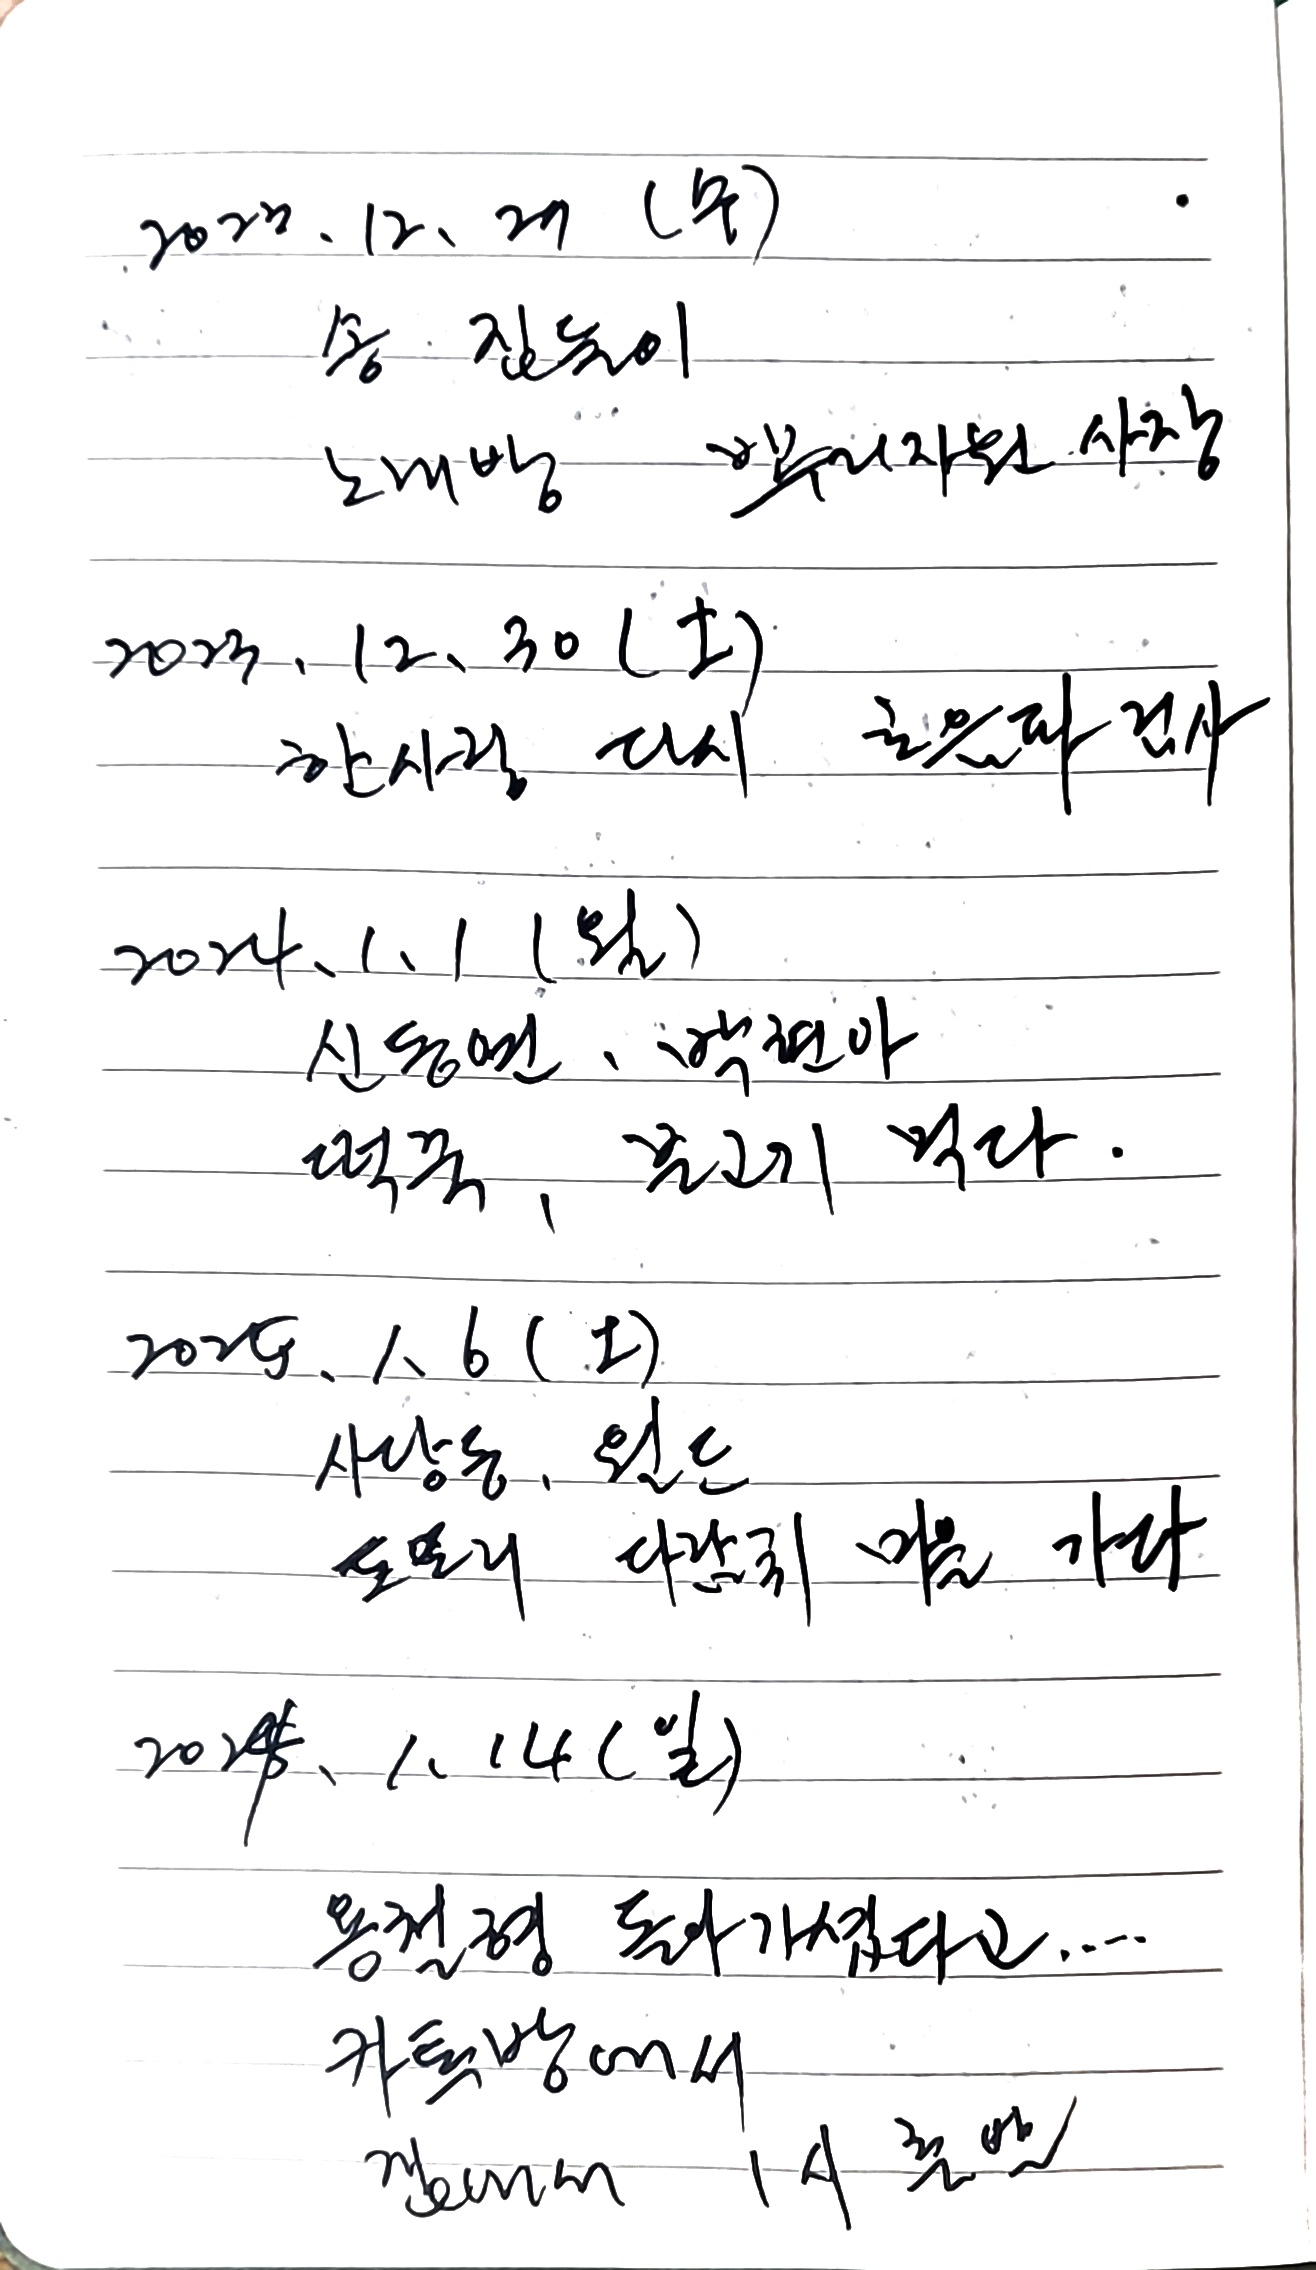 2023. 12. 27 (수)
송 집들이
노래방 뿌리자원 사장
2023. 12. 30 (土)
한사랑 다시
2024. 1. 1 (월)
신동연, 박현아
떡국, 불고기 먹다.
2025. 1. 6 (土)
사랑동, 원도
도모리 마을 가다
2024. 1. 14 (일)
용철형 돌아가셨다고....
카톡방에서
집에서 1시 출발